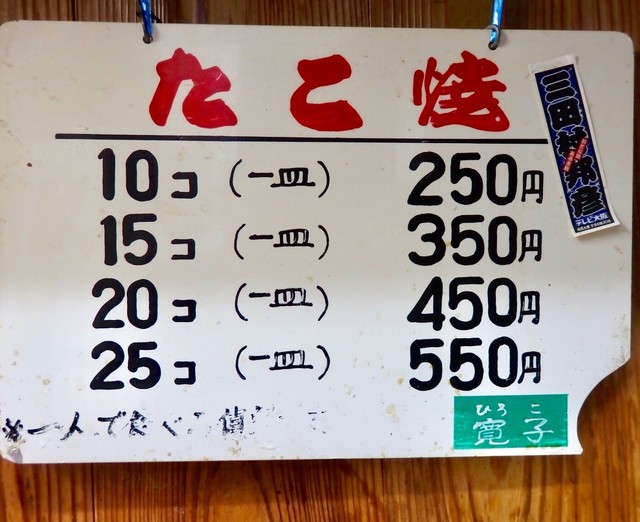 たこ焼
10コ (一皿) 250円
15コ (一皿) 350円
20コ (一皿) 450円
25コ (一皿) 550円
※一人で食べる値
ひろこ
寛子
三田村邦彦
テレビ大阪